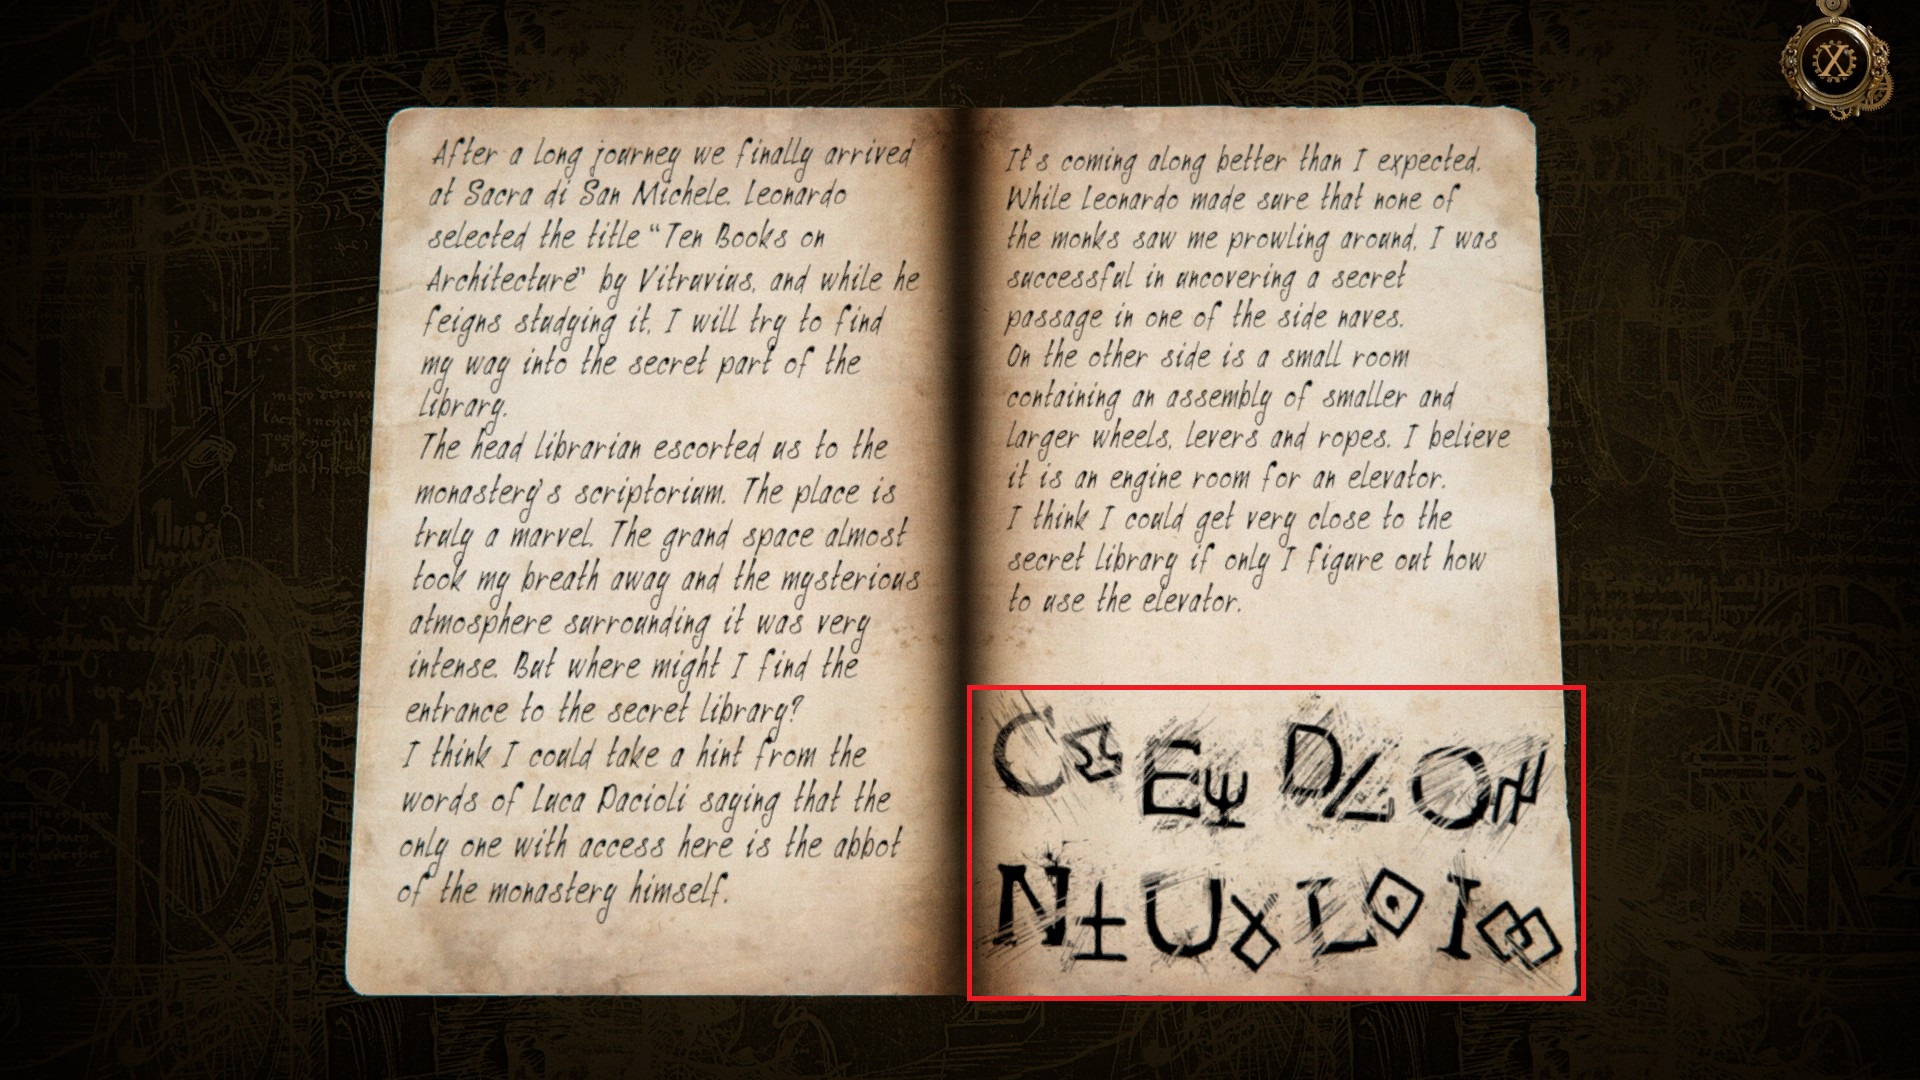 After a long journey we finally arrived
at Sacra di San Michele. Leonardo
selected the title “Ten Books on
Architecture” by Vitruvius, and while he
feigns studying it, I will try to find
my way into the secret part of the
library.
The head librarian escorted us to the
monastery's scriptorium. The place is
truly a marvel. The grand space almost
took my breath away and the mysterious
atmosphere surrounding it was very
intense. But where might I find the
entrance to the secret library?
I think I could take a hint from the
words of Luca Pacioli saying that the
only one with access here is the abbot
of the monastery himself.
It's coming along better than I expected.
While Leonardo made sure that none of
the monks saw me prowling around, I was
successful in uncovering a secret
passage in one of the side naves.
On the other side is a small room
containing an assembly of smaller and
larger wheels, levers and ropes. I believe
it is an engine room for an elevator.
I think I could get very close to the
secret library if only I figure out how
to use the elevator.
C E D O
N U L I
X